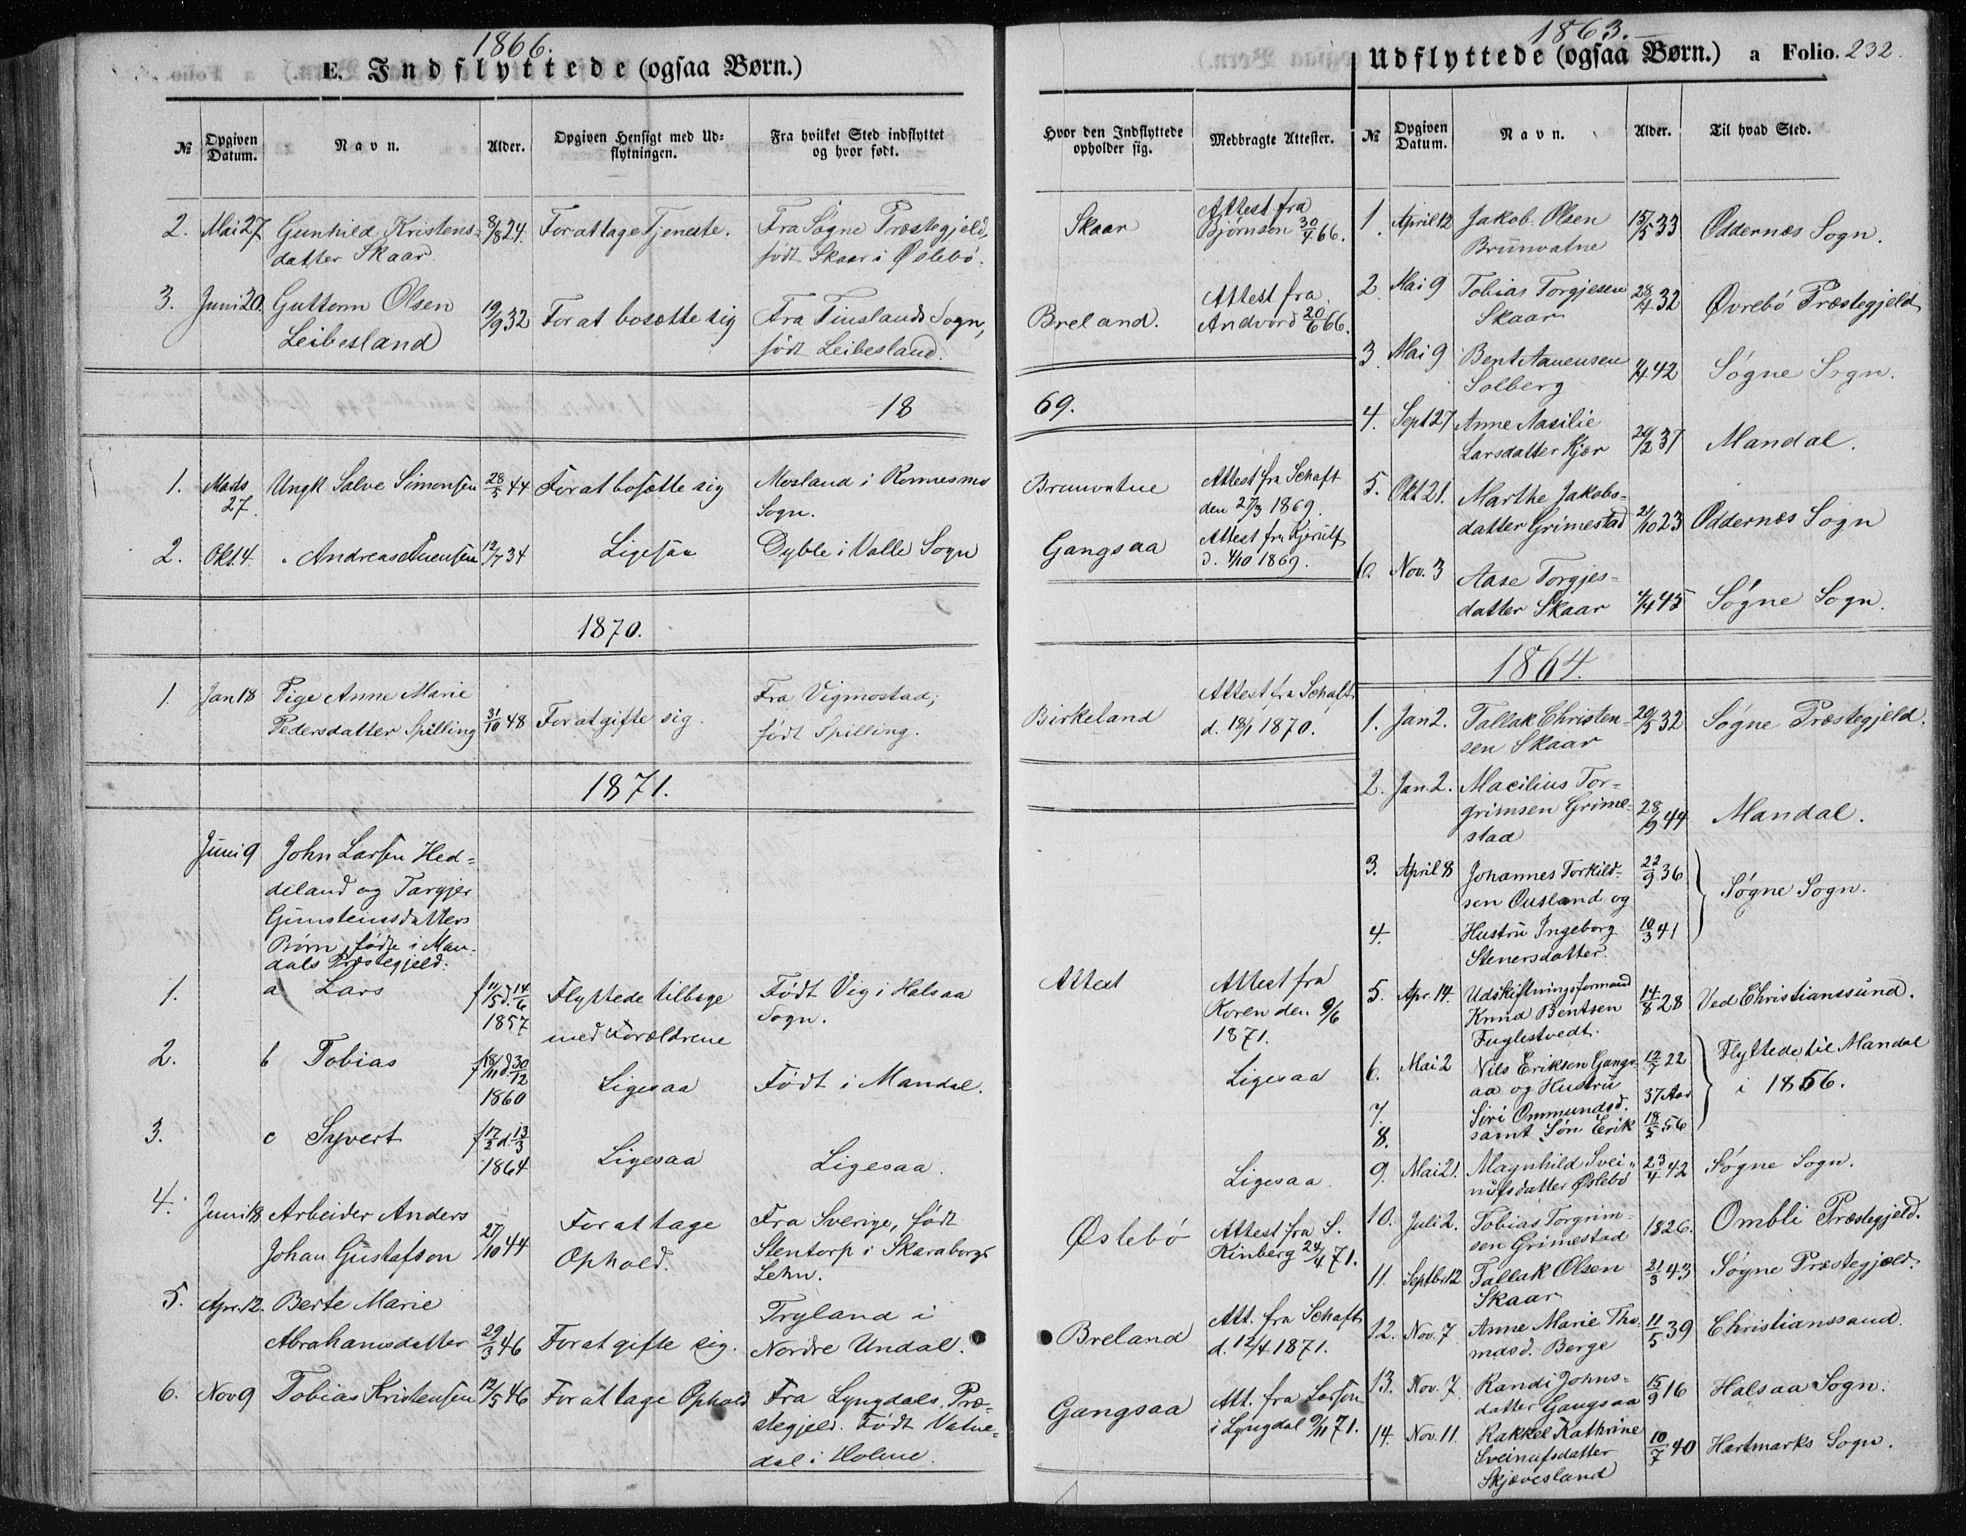 1866.
E. Indflyttede (ogsaa Børn.)
№
Opgiven Datum.
Navn.
Alder.
Opgiven Hensigt med Ud-
flytningen.
Fra hvilket Sted indflyttet
og hvor født.
Hvor den Indflyttede
opholder sig.
Medbragte Attester.
2. Mai 27 Gunhild Kristens- 8/8 24. For at tage Tjeneste. Fra Søgne Præstegjeld, Skaar Attest fra
datter Skaar født Skaar i Øslebø. Bjørnson 30/4 66.
3. Juni 20. Guttorm Olsen 19/9 32 For at bosætte sig Fra Finslands Sogn, Breland. Attest fra
Leibesland født Leibesland. Andvord 20/6 66.
18 69.
1. Mads Ungk Salve Simonsen 28/5 44 For at bosætte sig Mosland i Sogn. Brunvatne Attest fra Schaft
27. den 27/3 1869.
2. Okt. 4. Andreas 12/7 34 Ligesaa Dyble i Valle Sogn Gangsaa Attest fra Kjerulf
d. 4/10 1869.
1870.
1. Jan 18 Pige Anne Marie Fra Vigmostad, Attest fra Schaft
Pedersdatter Spilling 31/10 48 For at gifte sig. født Spilling. Birkeland d. 18/1 1870.
1871.
Juni 9 John Larsen Hed-
deland og Targjer
Gunsteinsdatters
Børn, fødte i Man-
dals Præstegjeld:
1. a Lars f 11/5 d. 14/6 Flyttede tilbage Født Vig i Halsaa Attest Attest fra
1857 med Forældrene Sogn. Koren den 9/6
1871.
2. b Tobias f 18/11 d. 30/12 Ligesaa Født i Mandal. Ligesaa
1860
3. c Syvert f 17/2 d. 13/3 Ligesaa Ligesaa. Ligesaa.
1864
4. Juni 18 Arbeider Anders 27/10 44 For at tage Fra Sverige, født Øslebø Attest fra S.
Johan Gustafson Ophold. Stentorp i Skaraborgs Kinberg 24/4 71.
Lehn.
5. Apr. 12. Berte Marie Tryland i Att. fra Schaft
Abrahamsdatter 29/3 46 For at gifte sig. Nordre Undal. Breland d. 12/4 1871.
6. Nov 9 Tobias Kristensen 12/5 46 For at tage Ophold Fra Lyngdals Præ- Gangsaa Att. fra Larsen
stegjeld. Født Vatne- i Lyngdal 9/11 71.
dal i Holme.
1863.
Udflyttede (ogsaa Børn.) a Folio. 232.
№
Opgiven Datum.
Navn.
Alder.
Til hvad Sted.
1. April 12 Jakob Olsen 15/5 33 Oddernæs Sogn.
Brunvatne
2 Mai 9 Tobias Torgjesen 28/7 32 Øvrebø Præstegjeld
Skaar
3 Mai 9 Bent Aanensen 42 Søgne Sogn.
Solberg
4. Sept 27 Anne Nasilie 29/2 37 Mandal.
Larsdatter Kjær
5. Okt 21. Marthe Jakobs-
datter Grimestad 21/10 23 Oddernæs Sogn
6. Nov. 3 Aase Torgjes-
datter Skaar 4/4 45 Søgne Sogn.
1864.
1. Jan 2. Tallak Christen- 20/3 32 Søgne Præstegjeld.
sen Skaar
2. Jan. 2. Macilius Tor-
grimsen Grime- 28/9 44 Mandal.
stad
3. April 8 Johannes Torkild- 22/9 36 Søgne Sogn.
sen Ousland og
4. Hustru Ingeborg 10/3 41
Stenersdatter.
5. Apr. 14. Udskiftningsformand 14/8 28 Ved Christianssund.
Knud Bentsen
Fuglestvedt.
6. Mai 2 Nils Eriksen Gangs- 12/7 22 Flyttede til Mandal
aa og Hustru i 1856.
7. Siri Ommundsd. 37 Aar
8. samt Søn Erik 18/5 56
9. Mai 21. Magnhild Svei- 23/4 42 Søgne Sogn.
nufsdatter Øslebø
10. Juli 2. Tobias Torgrim- 1826. Ombli Præstegjeld.
sen Grimestad
11. Septbr 12 Tallak Olsen 21/3 43 Søgne Præstegjeld.
Skaar
12. Nov. 7 Anne Marie Tho- 11/5 39 Christianssand.
masd. Berge
13. Nov. 7. Randi Johns- 15/9 16 Halsaa Sogn.
datter Gangsaa
14. Nov. 11. Rakkel Kathrine 10/7 40 Hartmarks Sogn.
Sveinufsdatter
Skjævesland